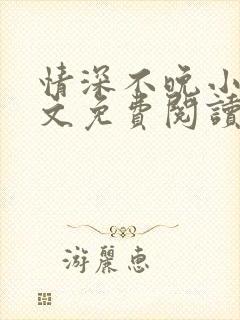 情深不晚小
文免費閱讀
游麗惠